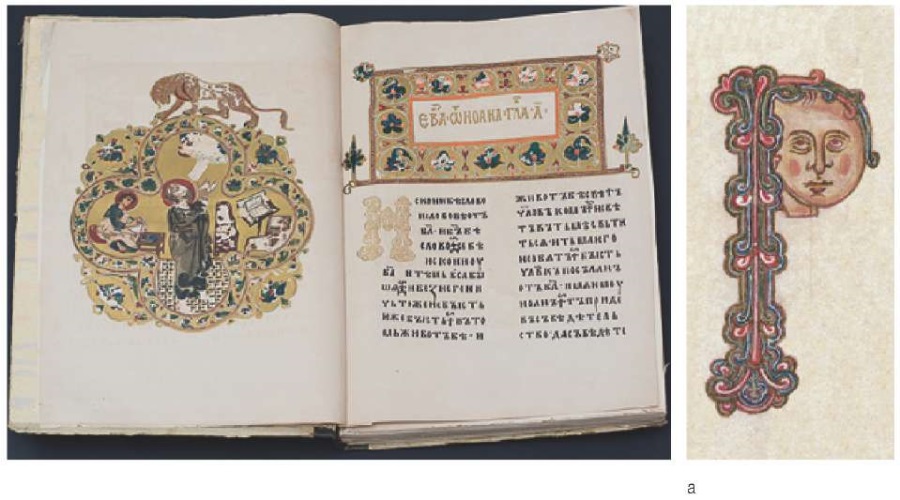 ЕВА· ѾИОАНА ГЛА· А·
ИСКОНИ БѢ СЛОВО
И СЛОВО БѢ ОТЪ
БА· И БЪ БѢ
СЛОВО СЕ БѢ
ИСКОНИ ОУ
БА И ТѢМЬ ВЬСА БЫ
ША· И БЕЖ НЕГО НИ
ЧЬТОЖЕ НЕ БЫСТЬ
ѤЖЕ БЫСТЬ ВЪ ТО
МЬ ЖИВОТЪ БѢ· И
ЖИВОТЪ БѢ СВѢТЪ
ЧЛВКОМЪ И СВѢ
ТЪ ВЪ ТЬМѢ СВЬТИ
ТЬСѦ· И ТЬМА ѤГО
НЕ ОБѦТЪ БЫСТЬ
ЧЛВКЪ ПОСЪЛАНЪ
ОТЪ БА· ИМѦ ѤМОУ
ИОАНЪ ТЪ ПРИДЕ
ВЪ СЪВѢДѢТЕЛЬ
СТВО· ДА СЪВѢДѢТЕ
a